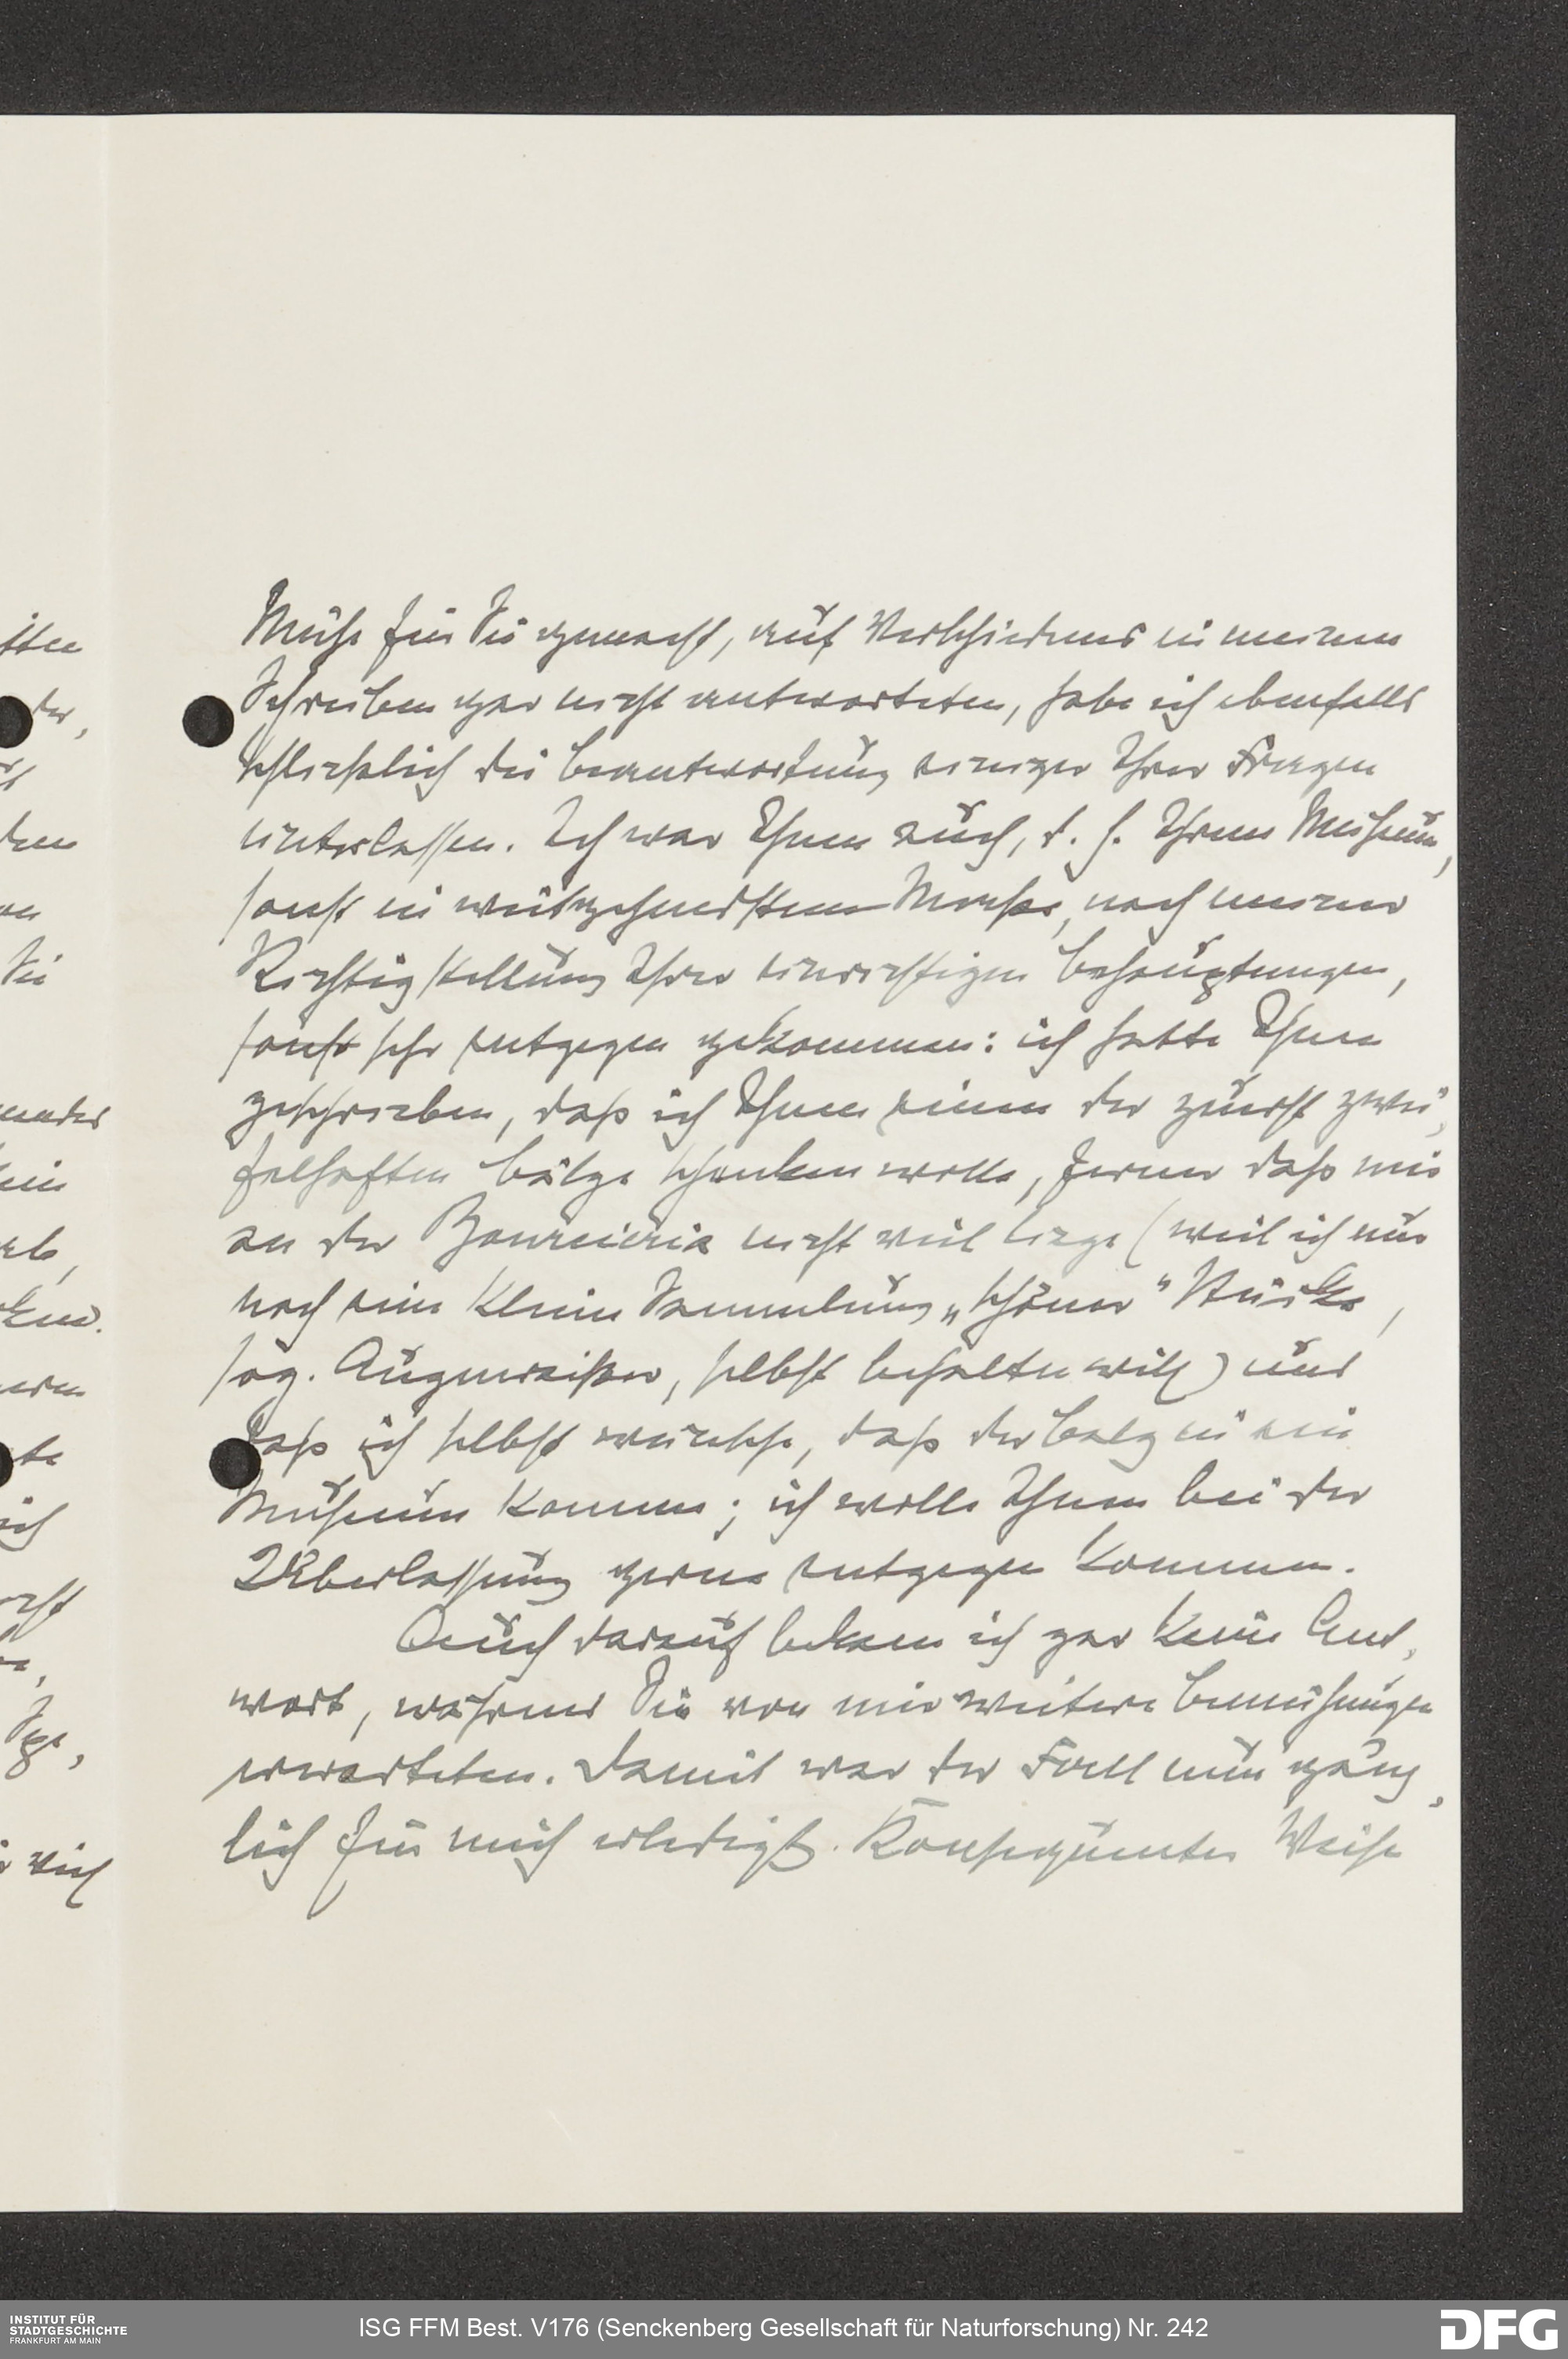 Mühe für Sie gemacht, auf Verschiedenes in meinem
Schreiben gar nicht antworteten, habe ich ebenfalls
schliesslich die Beantwortung einiger Ihrer Fragen
unterlassen. Ich war Ihnen auch, d. h. Ihrem Museum,
sonst in weitgehendstem Masse, nach meiner
Richtigstellung Ihrer unrichtigen Behauptungen,
sonst sehr entgegen gekommen: ich hatte Ihnen
geschrieben, daß ich Ihnen einen der zuerst zwei-
felhaften Bälge schenken wolle, ferner daß mir
an der nicht viel liege (weil ich nur
noch eine kleine Sammlung „schöner" Stücke,
sog. Augenreisser, selbst behalten will) und
daß ich selbst wünsche, daß der Balg in ein
Museum komme; ich wolle Ihnen bei der
Überlassung gerne entgegen kommen.
Auch darauf bekam ich gar keine Ant-
wort, während Sie von mir weitere Bemühungen
erwarteten. Damit war der Fall nun gänz-
lich für mich erledigt. Konsequenter Weise
ISG FFM Best. V176 (Senckenberg Gesellschaft für Naturforschung) Nr. 242
INSTITUT FÜR
STADTGESCHICHTE
FRANKFURT AM MAIN
DFG